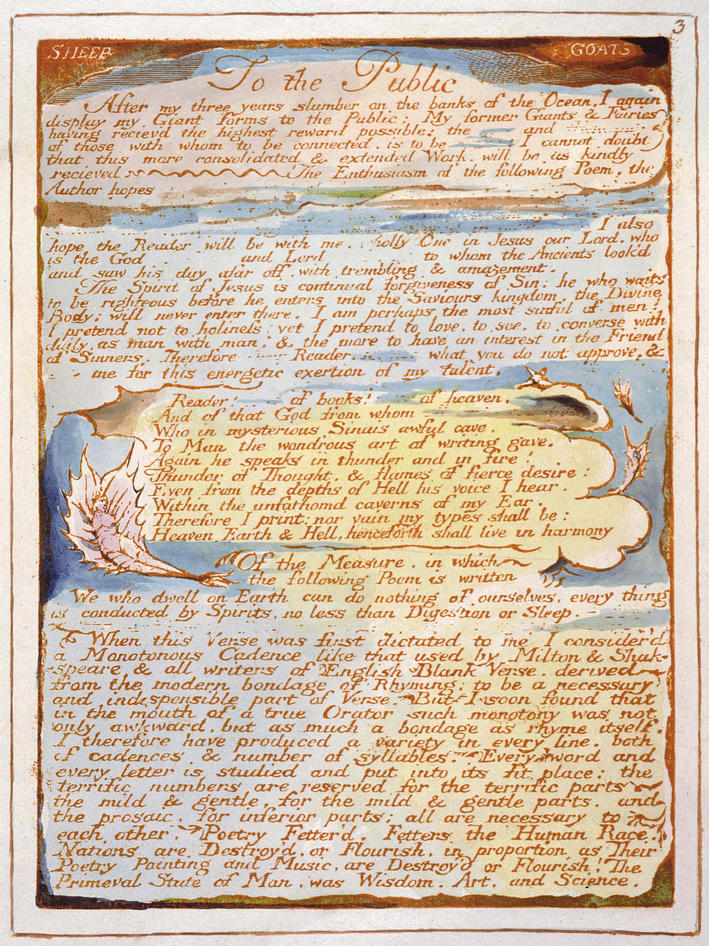 3
SHEEP GOATS
To the Public
After my three years slumber on the banks of the Ocean, I again
display my Giant forms to the Public: My former Giants & Fairies
having reciev'd the highest reward possible: the and
of those with whom to be connected, is to be I cannot doubt
that this more consolidated & extended Work, will be as kindly
recieved The Enthusiasm of the following Poem, the
Author hopes
I also
hope the Reader will be with me, wholly One in Jesus our Lord, who
is the God and Lord to whom the Ancients look'd
and saw his day afar off, with trembling & amazement.
The Spirit of Jesus is continual forgiveness of Sin: he who waits
to be righteous before he enters into the Saviours kingdom, the Divine
Body; will never enter there. I am perhaps the most sinful of men!
I pretend not to holiness: yet I pretend to love, to see, to converse with
daily, as man with man, & the more to have an interest in the Friend
of Sinners. Therefore Reader, what you do not approve, &
me for this energetic exertion of my talent.
Reader! of books! of heaven,
And of that God from whom
Who in mysterious Sinais awful cave
To Man the wondrous art of writing gave,
Again he speaks in thunder and in fire!
Thunder of Thought, & flames of fierce desire:
Even from the depths of Hell his voice I hear,
Within the unfathomd caverns of my Ear.
Therefore I print; nor vain my types shall be:
Heaven, Earth & Hell, henceforth shall live in harmony
Of the Measure, in which
the following Poem is written
We who dwell on Earth can do nothing of ourselves, every thing
is conducted by Spirits, no less than Digestion or Sleep.
When this Verse was first dictated to me I consider'd
a Monotonous Cadence like that used by Milton & Shak-
speare & all writers of English Blank Verse, derived
from the modern bondage of Rhyming; to be a necessary
and indispensible part of Verse. But I soon found that
in the mouth of a true Orator such monotony was not
only awkward, but as much a bondage as rhyme itself.
I therefore have produced a variety in every line, both
of cadences & number of syllables. Every word and
every letter is studied and put into its fit place: the
terrific numbers are reserved for the terrific parts
the mild & gentle, for the mild & gentle parts, and
the prosaic, for inferior parts: all are necessary to
each other. Poetry Fetter'd, Fetters the Human Race!
Nations are Destroy'd, or Flourish, in proportion as Their
Poetry Painting and Music, are Destroy'd or Flourish! The
Primeval State of Man, was Wisdom, Art, and Science.